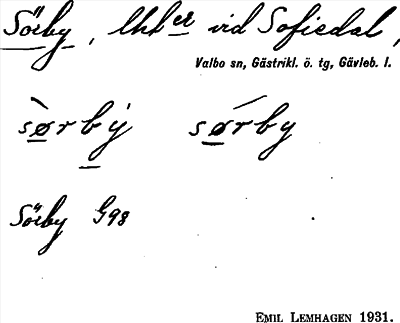 Sörby, lhl er vid Sofiedal,
Valbo sn, Gästrikl. ö. tg, Gävleb. l.
sø̀rbý sǿrby
Sörby G98
EMIL LEMHAGEN 1931.